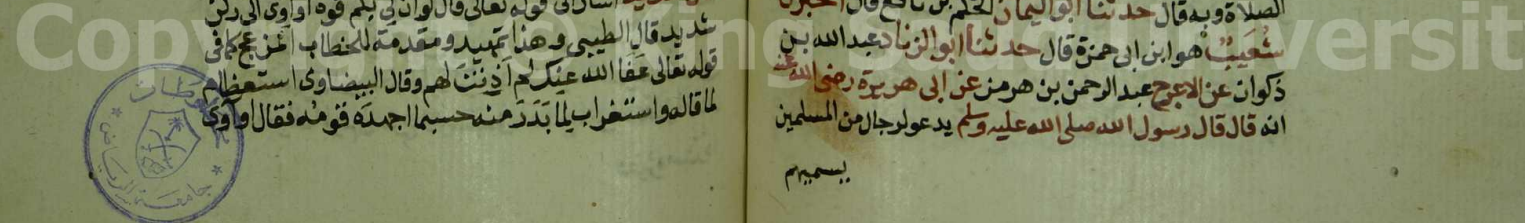 الصلاة وبه قال حدثنا ابو اليمان الحكم بن نافع قال اخبرنا
شعيب هو ابن ابى حمزة قال حدثنا ابو الزناد عبد الله بن
ذكوان عن الاعرج عبد الرحمن بن هرمز عن ابى هريرة رضى الله عنه
انه قال قال رسول الله صلى الله عليه وسلم يدعو لرجال من المسلمين
يسميهم
قوله تعالى قال لو ان لى بكم قوة او آوى الى ركن
شديد قال الطيبى وهذا تمهيد ومقدمة للخطاب المزعج كما فى
قوله تعالى عفا الله عنك لم اذنت لهم وقال البيضاوى استعظام
لما قاله واستغراب لما بدر منه حسبما اجهده قومه فقال او آوى
جامعة الرياض
Copy
King Saud University